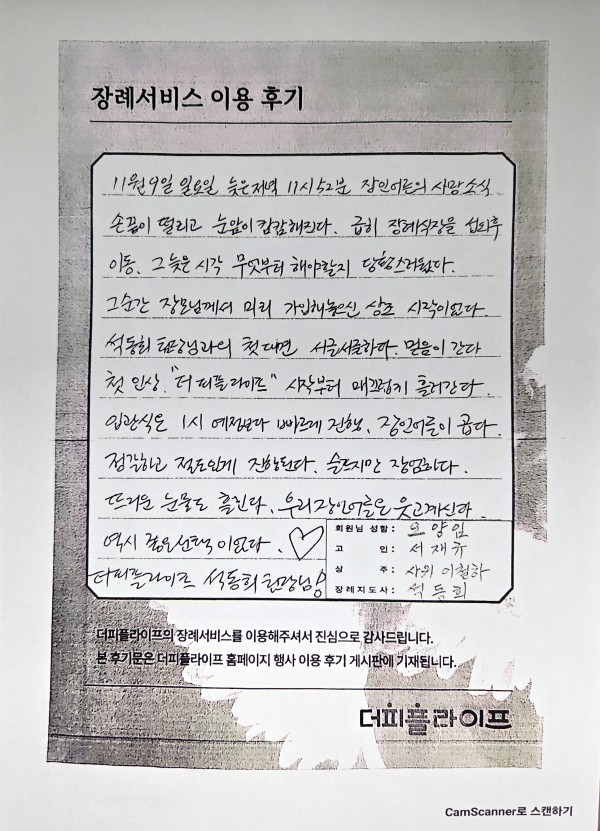 장례서비스 이용 후기
11월 9일 일요일 늦은저녁 11시 52분 장인어른의 사망소식
손끝이 떨리고 눈앞이 캄캄해진다. 급히 장례식장을 섭외후
이동. 그늦은 시각 무엇부터 해야할지 당황스러웠다.
그순간 장모님께서 미리 가입해놓으신 상조 시작이였다.
석동희 팀장님과의 첫대면 서글서글하다. 믿음이 간다
첫 인상. "더 피플라이프" 시작부터 매끄럽게 흘러간다.
입관식은 1시 예정보다 빠르게 진행. 장인어른이 곱다.
정갈하고 절도있게 진행된다. 슬프지만 장엄하다.
뜨거운 눈물도 흘린다. 우리장인어른은 웃고계신다.
역시 좋은선택 이였다. ♡
더피플라이프 석동희 팀장님!
회원님 성함 : 양임
고 인 : 서재규
상 주 : 사위 이철하
장례지도사 : 석동희
더피플라이프의 장례서비스를 이용해주셔서 진심으로 감사드립니다.
본 후기문은 더피플라이프 홈페이지 행사 이용 후기 게시판에 기재됩니다.
더피플라이프
CamScanner로 스캔하기